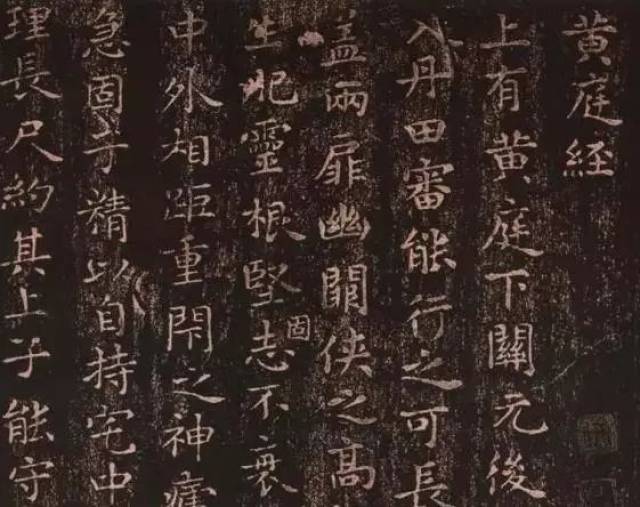 黄庭経
上有黄庭下關元後
入丹田審能行之可長
盖兩扉幽闕侠之高
生肥靈根堅志不衰
固
中外相距重閇之神
急固子精以自持宅中
理長尺約其上子能守